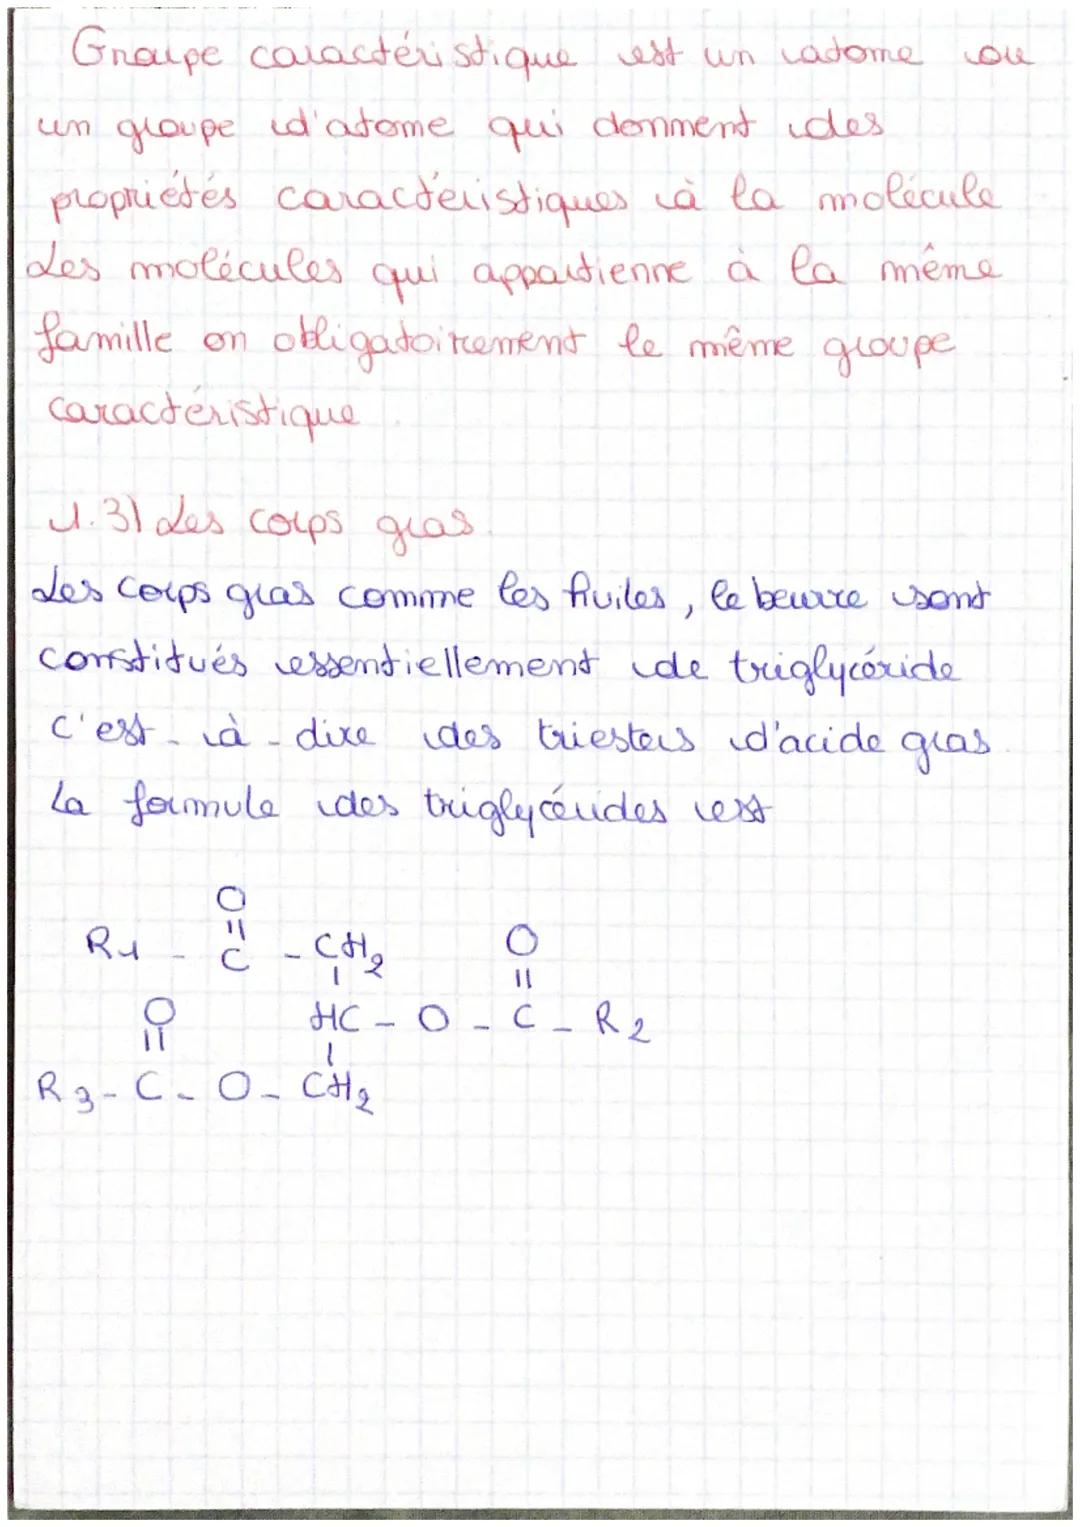 Groupe caractéristique est un atome ou
un groupe d'atome qui donnent des
propriétés caractéristiques à la molécule
Les molécules qui appartienne à la même
famille on obligatoirement le même groupe
caractéristique.
1.3) Les corps gras.
Les corps gras comme les huiles, le beurre sont
constitués essentiellement de triglycéride
c'est-à-dire des triesters d'acide gras.
La formule des triglycérides est
O
R1 - C - CH2 O
O HC - O - C - R2
R3 - C - O - CH2